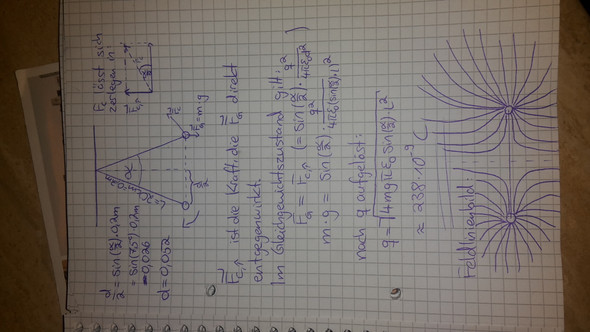 d/2 = sin(α/2)·0,2m
= sin(7,5°)·0,2m
= 0,026
d = 0,052
α
0,2m
d/2
F_G = m·g
F_C lässt sich
zerlegen in
F_C,n ist die Kraft, die F_G direkt
entgegenwirkt.
Im Gleichgewichtszustand gilt:
F_G = F_C,n (= sin(α/2)· q²/4πε₀d²)
m·g = sin(α/2)· q²/4πε₀(sin(α/2)·l)²
nach q aufgelöst:
q = √4mgπε₀ sin(α/2) l²
≈ 238·10⁻⁹ C
Feldlinienbild: